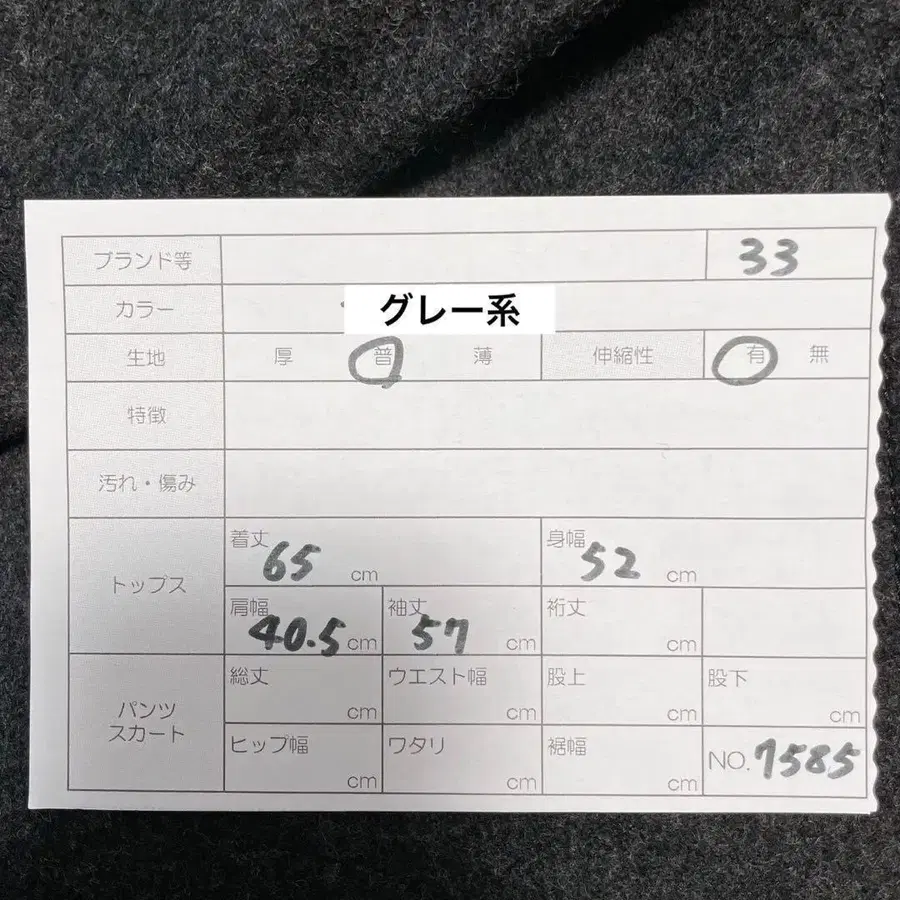 ブランド等 33
カラー グレー系
生地 厚 普 薄 伸縮性 有 無
特徴
汚れ・傷み
トップス
着丈 65 cm 身幅 52 cm
肩幅 40.5 cm 袖丈 57 cm 裄丈 cm
パンツ
スカート
総丈 cm ウエスト幅 cm 股上 cm 股下 cm
ヒップ幅 cm ワタリ cm 裾幅 cm NO. 7585